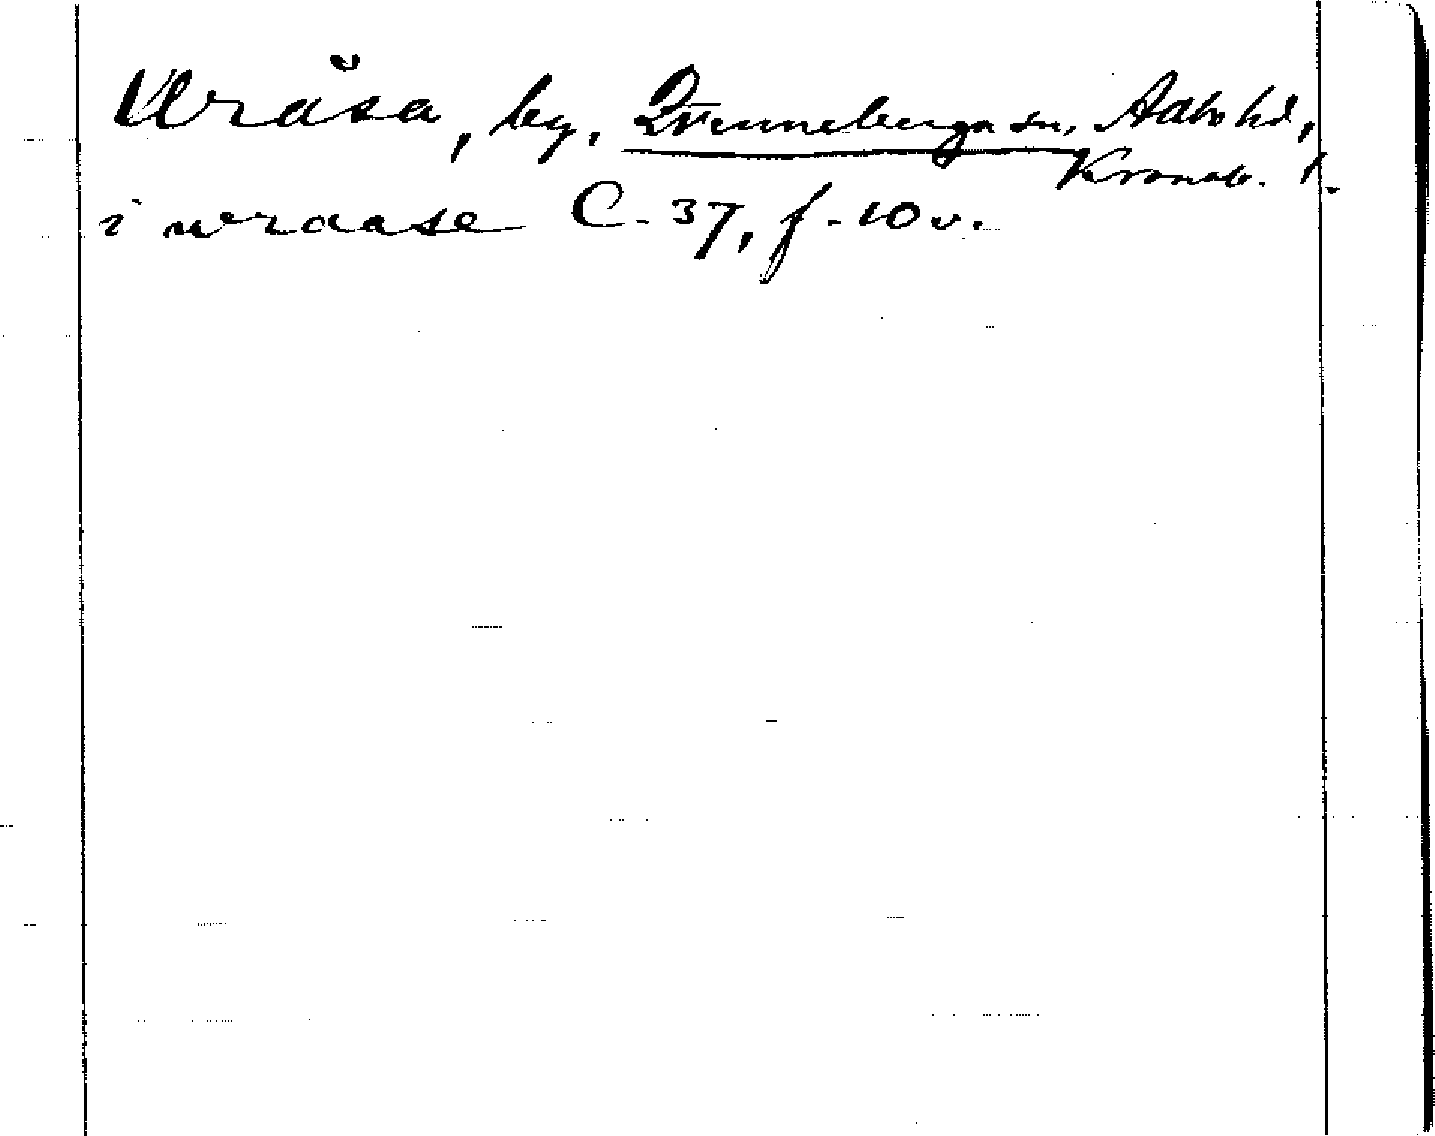 Uråsa, by, Drenneberga sn, Adbo hd,
Kronob. l.
i wraase C. 37, f. 10 v.